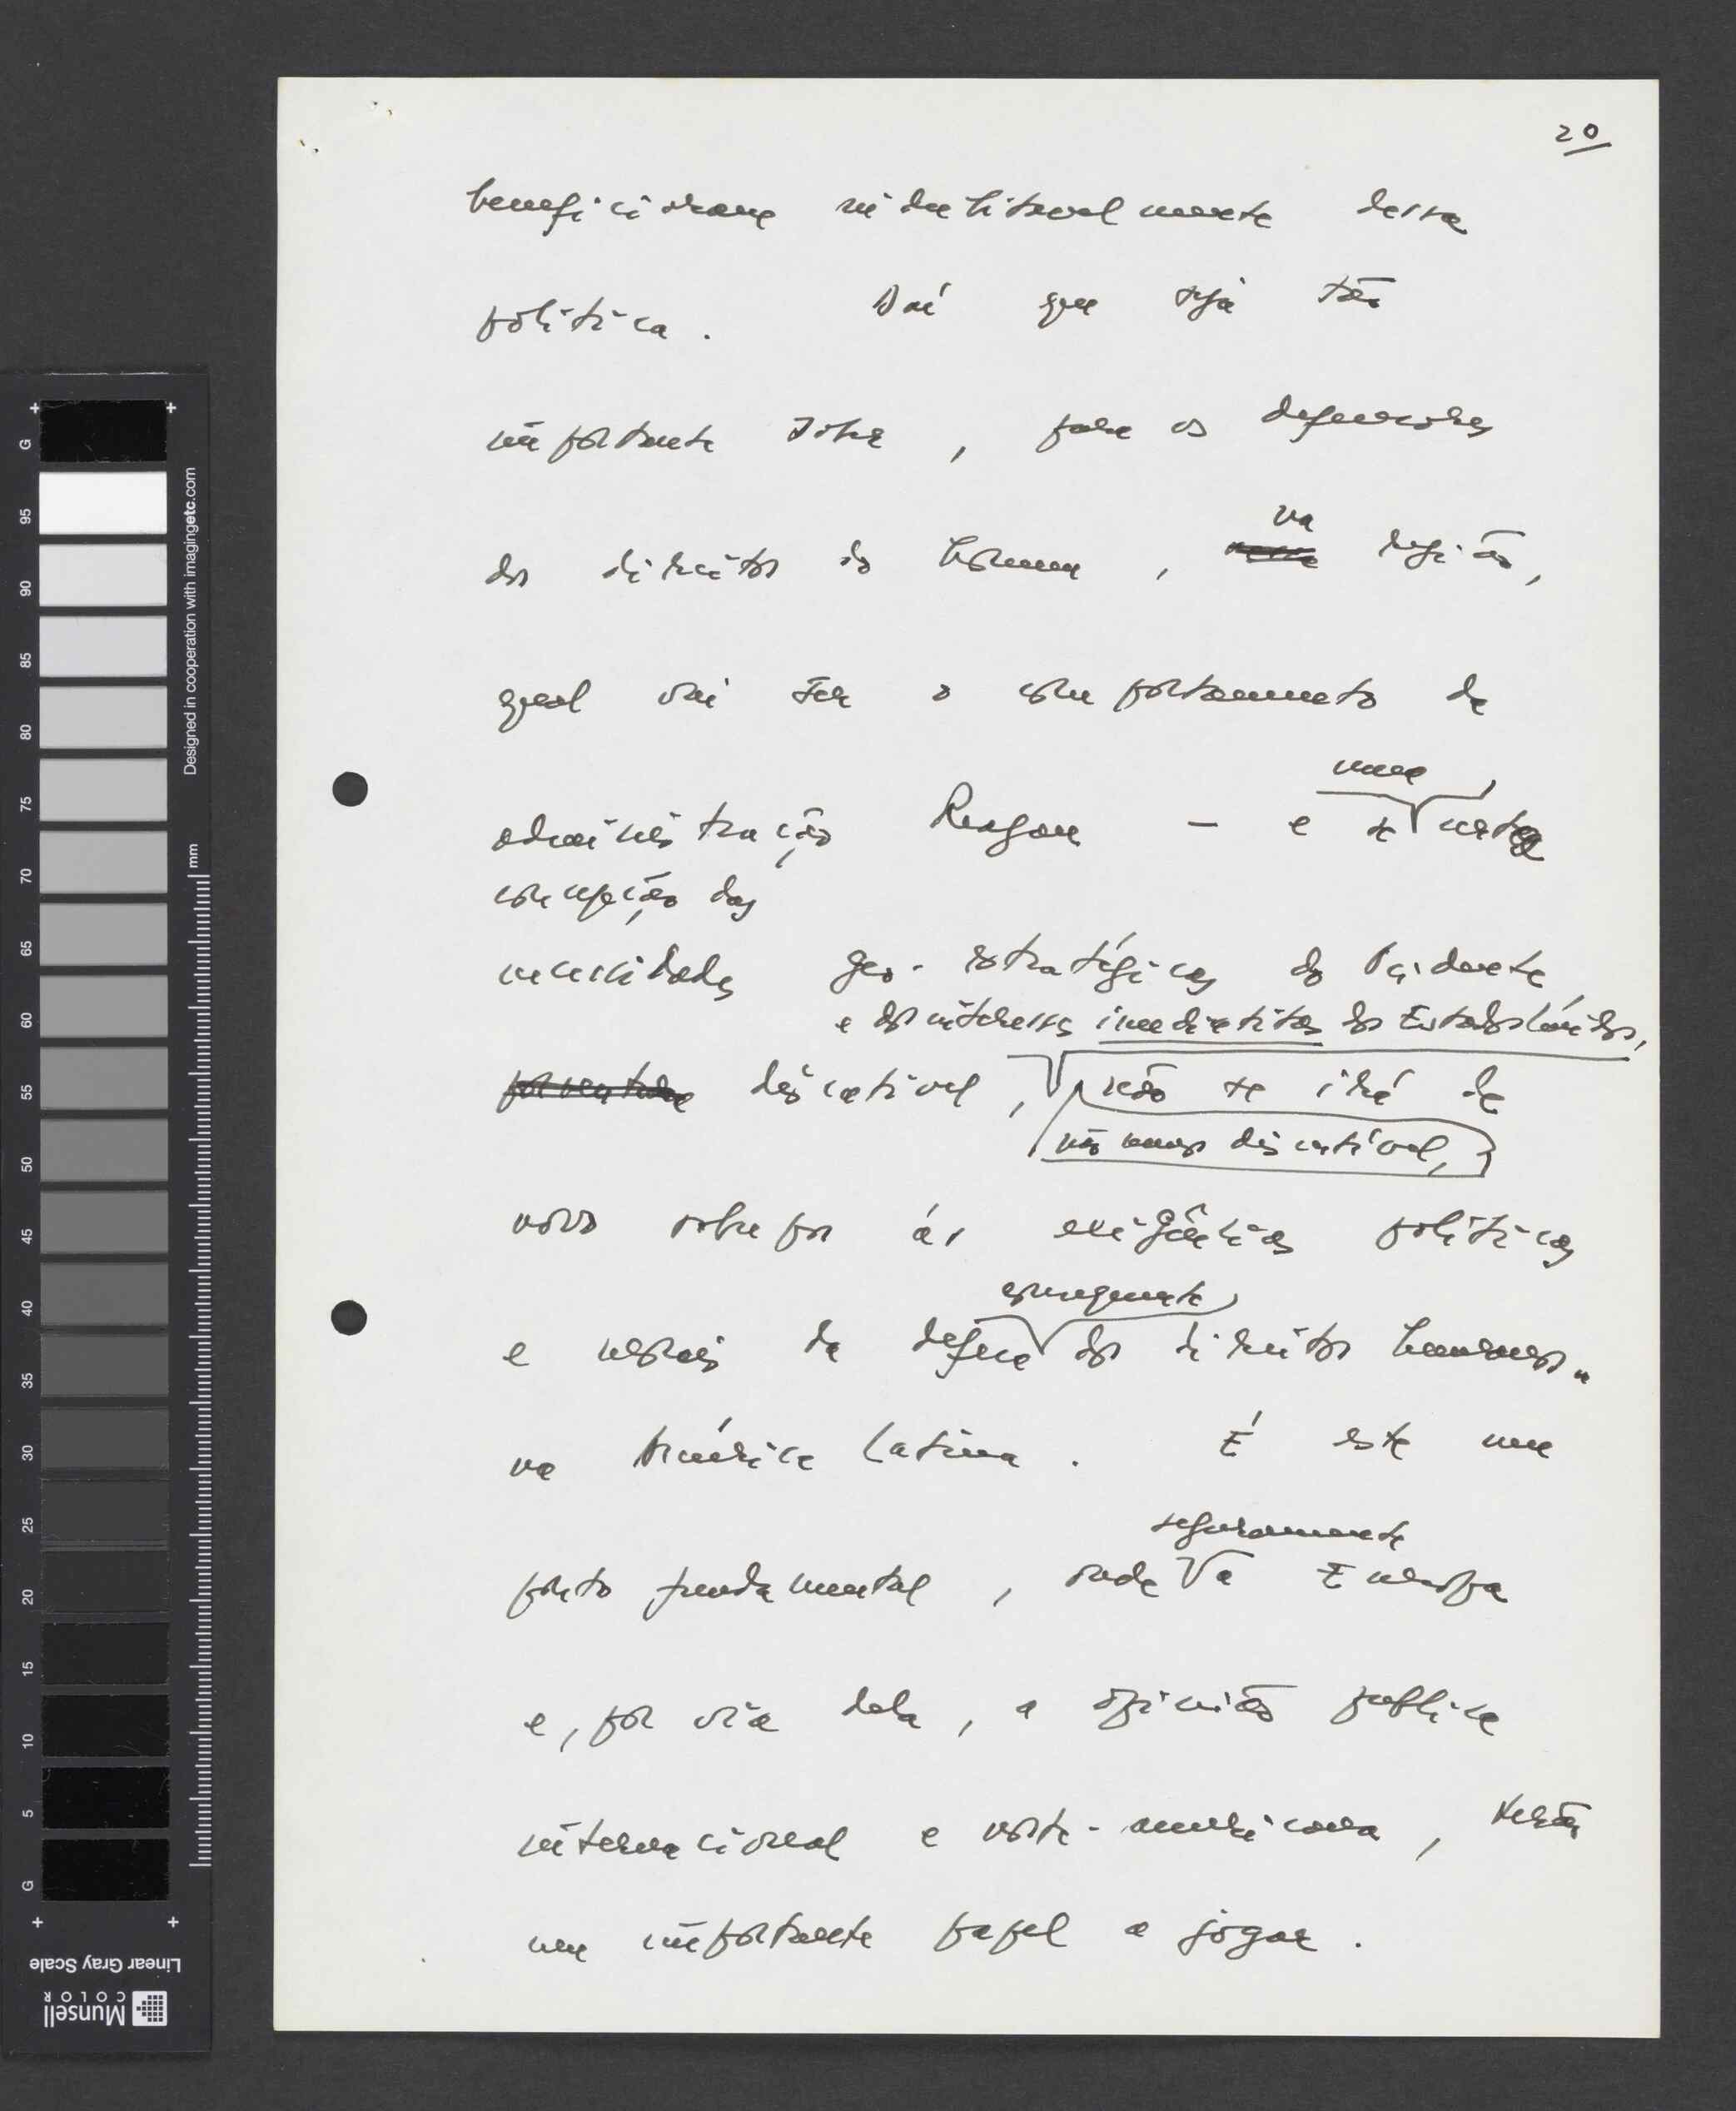 20
beneficiaram indubitavelmente dessa
política. Daí que seja tão
importante saber, para os defensores
dos direitos do homem, na região,
qual vai ser o comportamento da
administração Reagan — e se numa certa
concepção das
necessidades geo-estratégicas do Ocidente,
e dos interesses imediatistas dos Estados Unidos,
discutível, não se irá de
não menos discutível,
novo sobrepor às exigências políticas
e morais da defesa consequente dos direitos humanos
na América Latina. É este um
ponto fundamental, onde seguramente a Europa
e, por via dela, a opinião pública
internacional e norte-americana, terão
um importante papel a jogar.
G 95 90 85 80 75 70 65 60 55 50 45 40 35 30 25 20 15 10 5 G
mm
Designed in cooperation with imagingetc.com
Linear Gray Scale
Munsell
COLOR